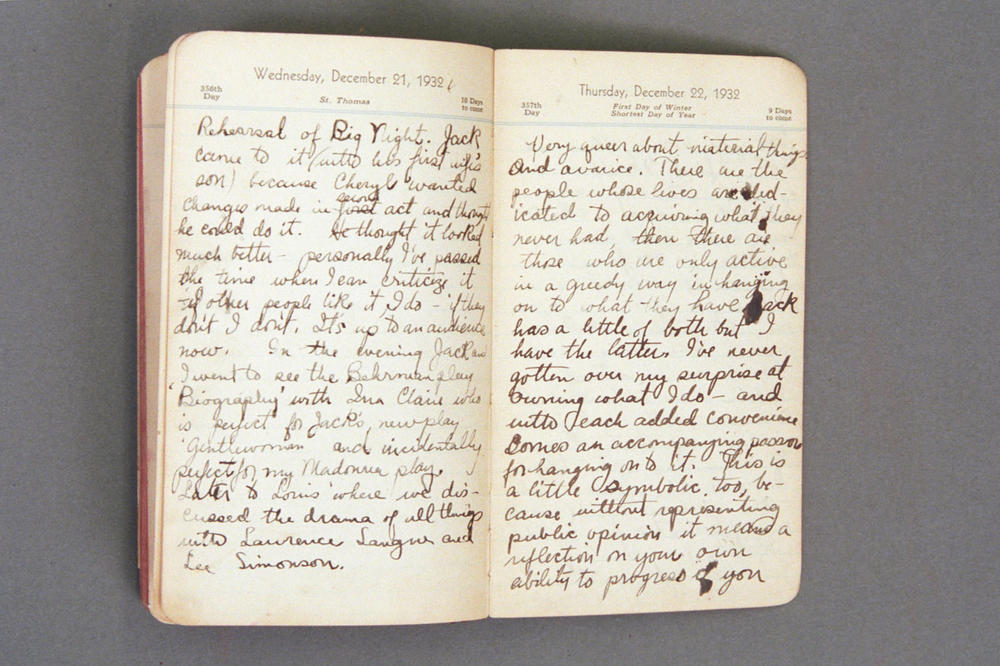 Wednesday, December 21, 1932
356th
Day
St. Thomas
10 Days
to come
Rehearsal of Big Night. Jack
came to it (with his first wife's
son) because Cheryl wanted
second
changes made in first act and thought
he could do it. He thought it looked
much better - personally I've passed
the time when I can criticize it
if other people like it I do - if they
don't I don't. It's up to an audience
now. In the evening Jack and
I went to see the Behrman play
'Biography' with Ina Claire who
is perfect for Jack's new play
'Gentlewoman' and incidentally
perfect for my Madonna play.
Later to Louis' where we dis-
cussed the drama of all things
with Lawrence Langner and
Lee Simonson.
Thursday, December 22, 1932
357th
Day
First Day of Winter
Shortest Day of Year
9 Days
to come
Very queer about material things
and avarice. There are the
people whose lives are ded-
icated to acquiring what they
never had, then there are
those who are only active
in a greedy way in hanging
on to what they have. Jack
has a little of both but I
have the latter. I've never
gotten over my surprise at
owning what I do - and
with each added convenience
comes an accompanying passion
for hanging on to it. This is
a little symbolic, too, be-
cause without representing
public opinion it means a
reflection on your own
ability to progress if you